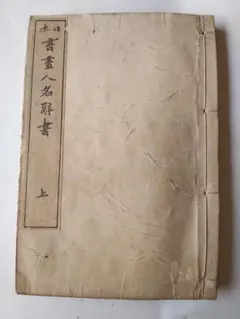 日本
書畫人名辭書
上